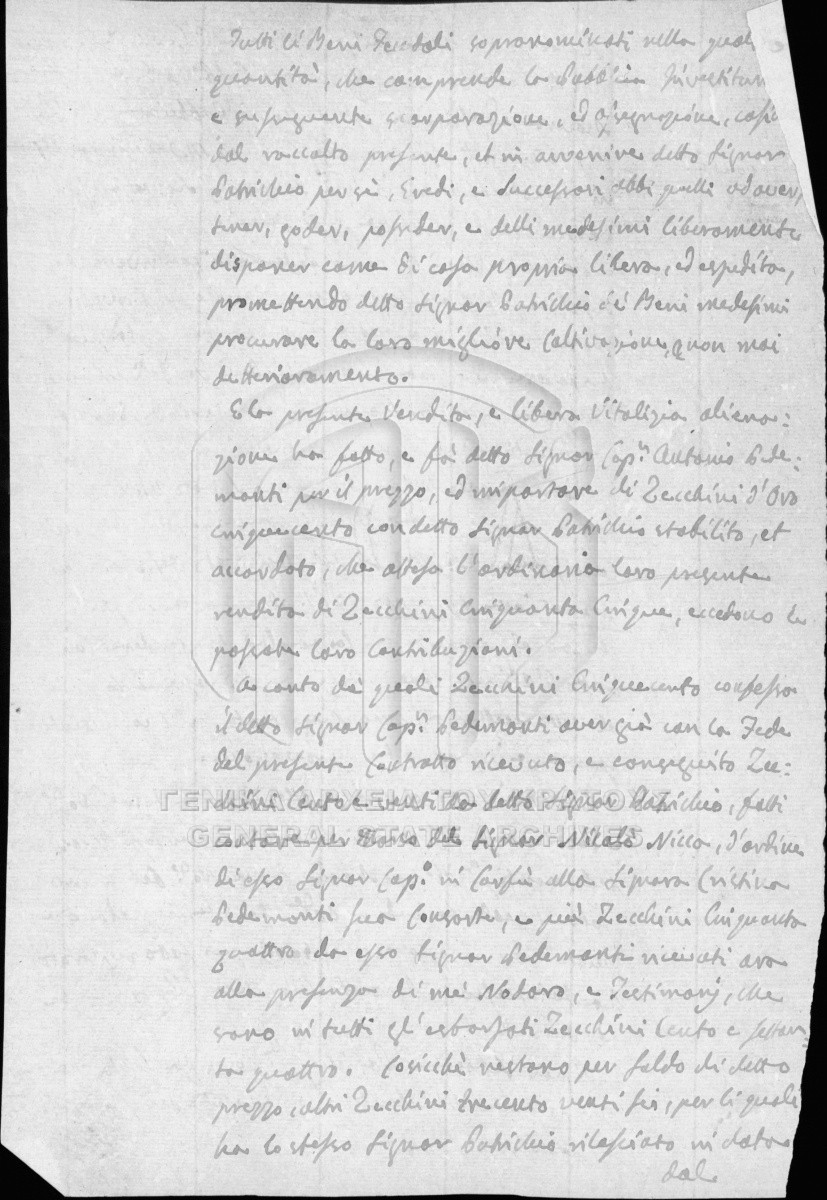 Tutti li Beni Feudali sopranominati nella
quantità, che comprende la Pubblica Investitura
e susseguente scorporazione, ed assegnazione, così
dal raccolto presente, et in avvenire detto Signor
Patrichio per sè, Eredi, e Successori abbi quelli ad aver,
tener, goder, posseder, e delli medesimi liberamente
disponer come di cosa propria libera, ed espedita,
promettendo detto Signor Patrichio de Beni medesimi
procurare la loro migliore Coltivazione, e non mai
detterioramento.
E la presente Vendita, e libera Vitalizia aliena:
zione ha fatto, e fà detto Signor Cap:n Antonio Pede:
monti per il prezzo, ed importare di Zecchini d'Oro
cinquecento con detto Signor Patrichio stabilito, et
accordato, che attesa l'ordinaria loro presente
rendita di Zecchini Cinquanta Cinque, eccedono le
possate loro Contribuzioni.
A conto de quali Zecchini Cinquecento confessa
il detto Signor Cap:n Pedemonti aver già con la Fede
del presente Contratto ricevuto, e conseguito Zec:
chini Cento e venti da detto Signor Patrichio, fatti
contare per Mano del Signor Nicolò Nicca, d'ordine
di esso Signor Cap:o in Corfù alla Signora Cristina
Pedemonti sua Consorte, e più Zecchini Cinquanta
quattro da esso Signor Pedemonti ricevuti ora
alla presenza di me Nodaro, e Testimonj, che
sono in tutti gl'esborsati Zecchini Cento e settan:
ta quattro. Cosicchè restano per saldo di detto
prezzo, altri Zecchini trecento venti sei, per li quali
ha lo stesso Signor Patrichio rilasciato in data
dal
ΓΕΝΙΚΑ ΑΡΧΕΙΑ ΤΟΥ ΚΡΑΤΟΥΣ
GENERAL STATE ARCHIVES